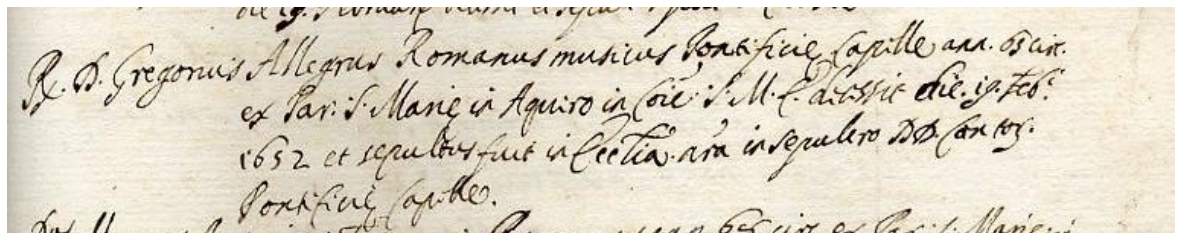 die 19. et
R. D. Gregorius Allegrus Romanus musicus Pontificię Capille ann. 65 circ.
ex Par: S. Marię in Aquiro in Coīe S. M. E. decessit die. 19. feb.ⁱⁱ
1652 et sepultus fuit in Eccłia nr̃a in sepulcro DD. Cantoꝝ.
Pontificię Capille.
65 circ. ex Par: S. Marię in